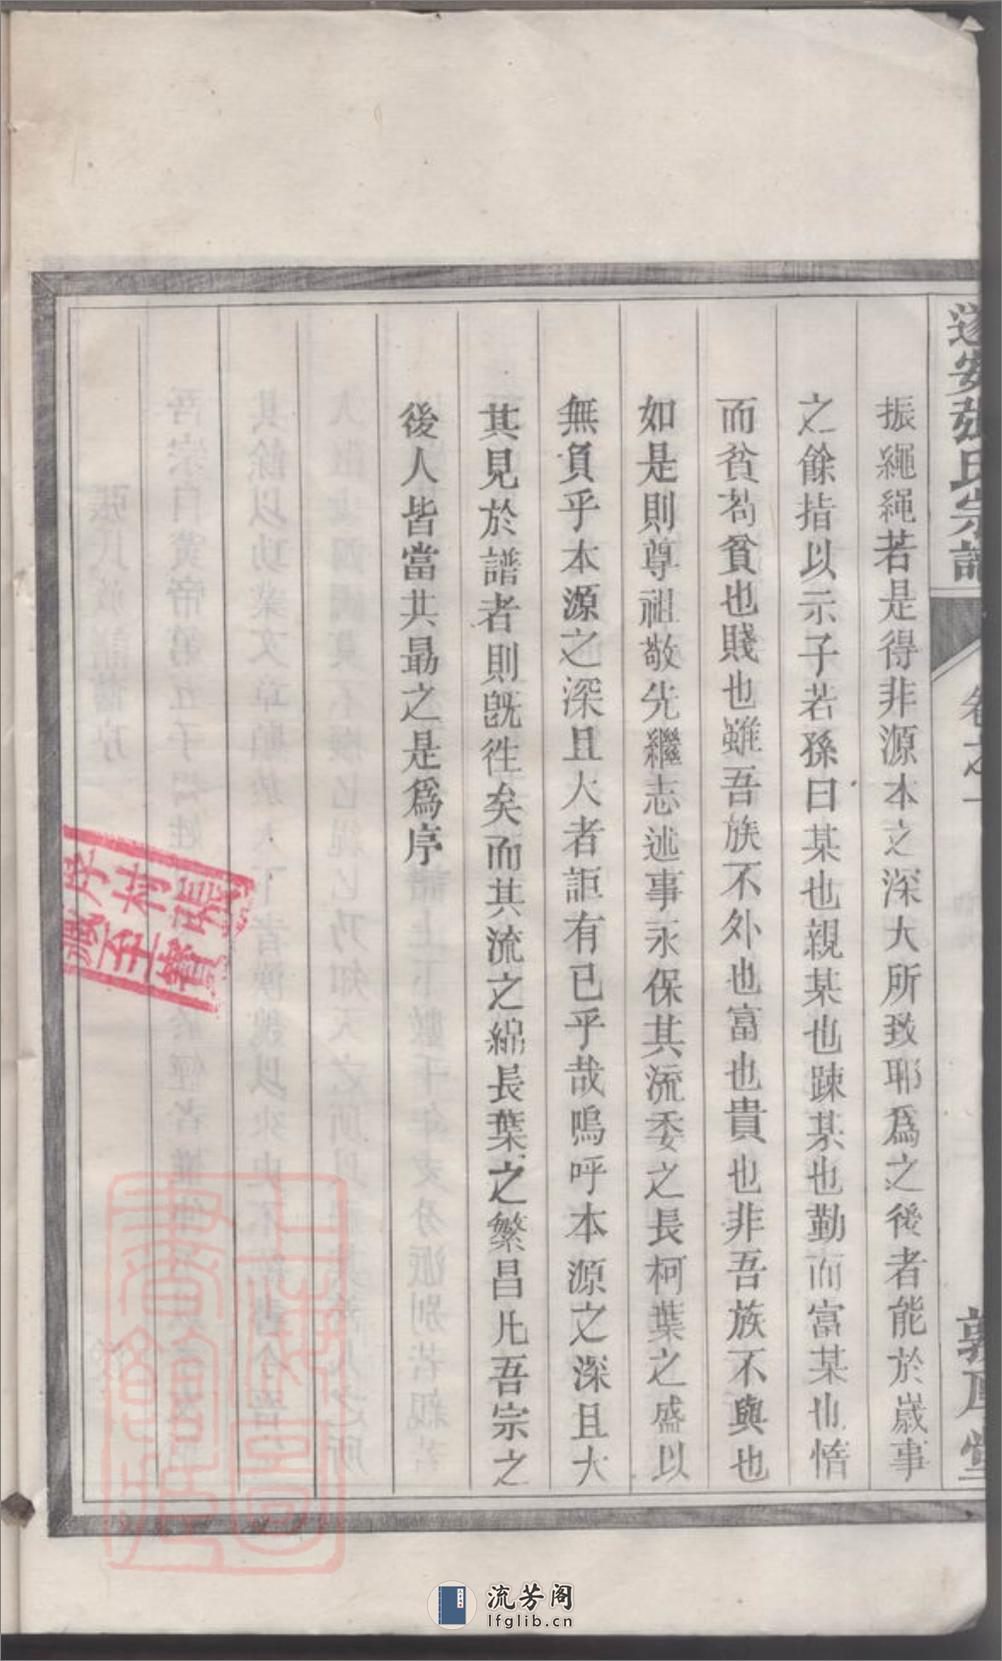 遂安張氏宗譜
卷之一
敦厚堂
振繩繩若是得非源本之深大所致耶爲之後者能於歲事
之餘指以示子若孫曰某也親某也踈某也勤而富某也惰
而貧苟貧也賤也雖吾族不外也富也貴也非吾族不與也
如是則尊祖敬先繼志述事永保其流委之長柯葉之盛以
無負乎本源之深且大者詎有已乎哉嗚呼本源之深且大
其見於譜者則旣徃矣而其流之綿長葉之繁昌凡吾宗之
後人皆當共勗之是爲序
張寶
村至
序
流芳阁
lfglib.cn